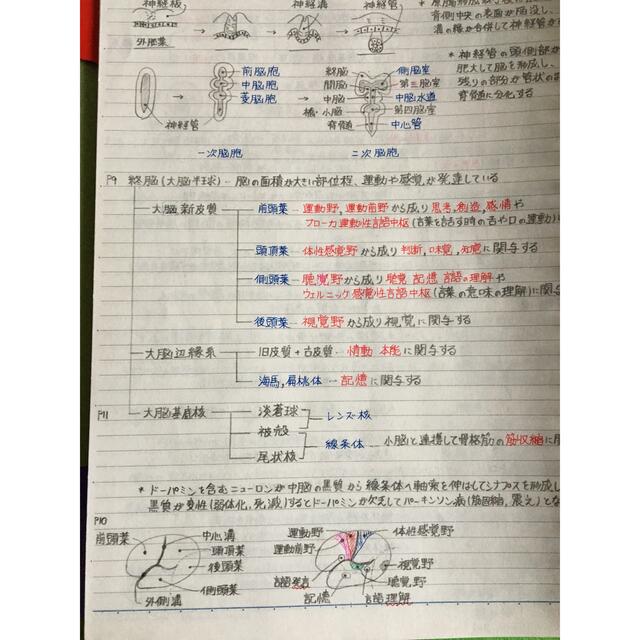 神経板
神経溝
神経管
外胚葉
背側中央の表面が陥没し、
溝の縁が合併して神経管が
* 神経管の頭側部が
肥大して脳を形成し、
残りの部分が管状の
脊髄に分化する
前脳胞
中脳胞
菱脳胞
神経管
一次脳胞
終脳
間脳
中脳
橋・小脳
脊髄
側脳室
第三脳室
中脳水道
第四脳室
中心管
二次脳胞
P9 終脳(大脳半球) - 脳の面積が大きい部位程、運動や感覚が発達している
大脳新皮質
前頭葉 - 運動野, 運動前野から成り 思考, 創造, 感情や
ブローカ運動性言語中枢(言葉を話す時の舌や口の運動)に
頭頂葉 - 体性感覚野から成り 判断, 味覚, 知覚に関与する
側頭葉 - 聴覚野から成り 聴覚 記憶 言語の理解や
ウェルニッケ感覚性言語中枢(言葉の意味の理解)に関与
後頭葉 - 視覚野から成り視覚に関与する
大脳辺縁系
旧皮質+古皮質 - 情動 本能に関与する
海馬, 扁桃体 - 記憶に関与する
P11
大脳基底核
淡蒼球
被殻
尾状核
レンズ核
線条体
小脳と連携して骨格筋の筋収縮に
* ドーパミンを含むニューロンが中脳の黒質から線条体へ軸索を伸ばしてシナプスを形成し
黒質が変性(弱体化, 死滅)するとドーパミンが欠乏してパーキンソン病(筋固縮, 震え)とな
P10
前頭葉
中心溝
頭頂葉
後頭葉
側頭葉
外側溝
運動野
運動前野
言語発言
記憶
体性感覚野
視覚野
聴覚野
言語理解